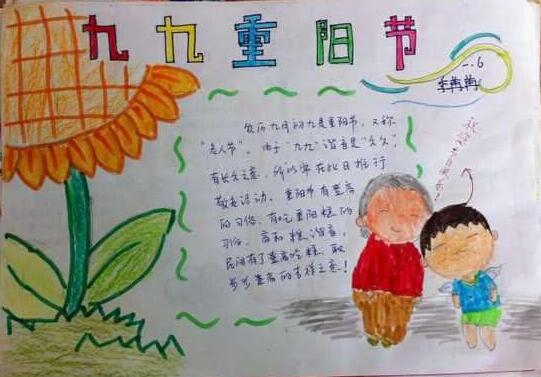 九九重阳节
一.6
农历九月初九是重阳节，又称
“老人节”。由于“九九”谐音是“久久”，
有长久之意，所以常在此日推行
敬老活动。重阳节有登高
的习俗，有吃重阳糕的
习俗，高和糕谐音，
民间有了登高吃糕，取
步步登高的吉祥之意！
节日快乐！